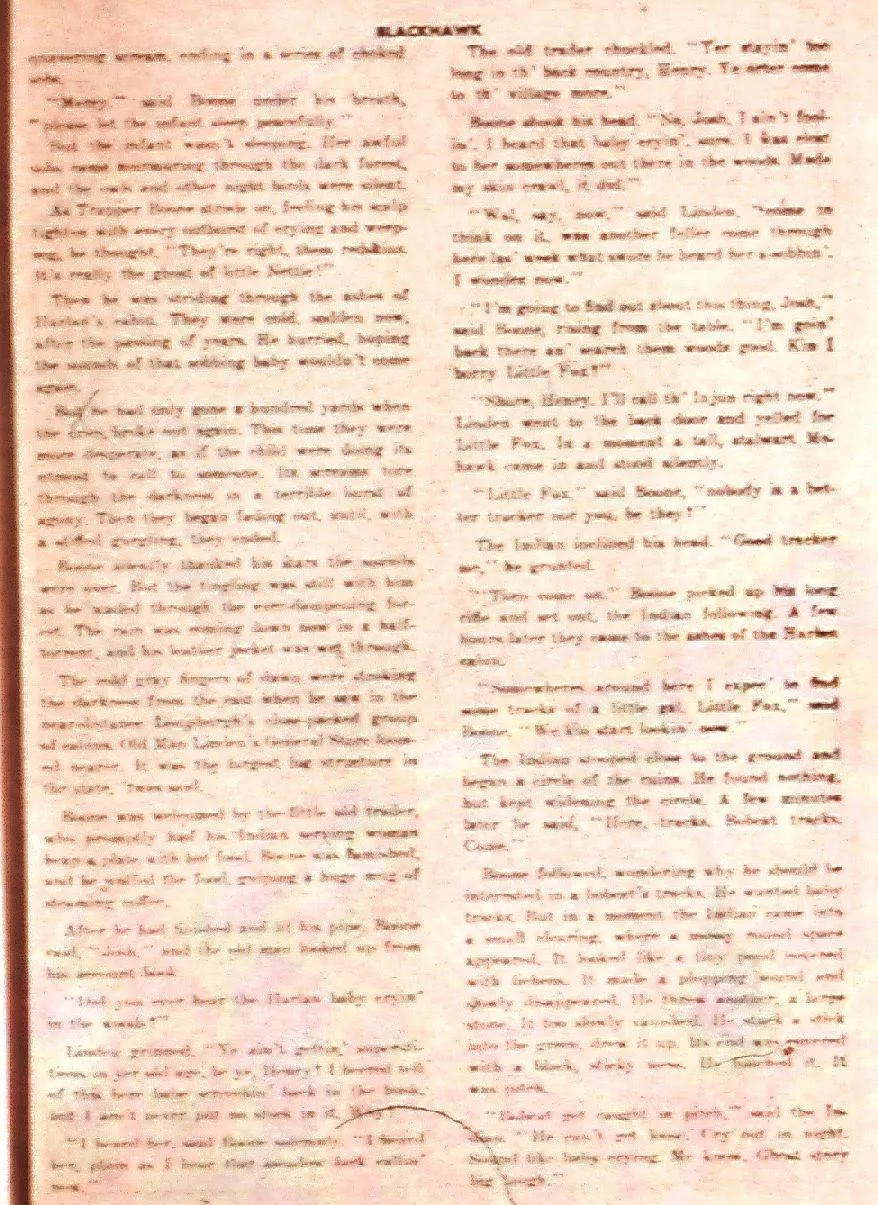 BLACKHAWK
quavering scream, ending in a series of choked
sobs.
"Mercy," said Boone under his breath,
"please let the infant sleep peacefully."
But the infant wasn't sleeping. Her awful
sobs came murmuring through the dark forest,
and the owls and other night birds were silent.
As Trapper Boone strode on, feeling his scalp
tighten with every outburst of crying and weep-
ing, he thought, "They're right, them redskins.
It's really the ghost of little Nettie!"
Then he was striding through the ashes of
Harlan's cabin. They were cold, sodden now,
after the passing of years. He hurried, hoping
the sounds of that sobbing baby wouldn't come
again.
But he had only gone a hundred yards when
the cries broke out again. This time they were
more desperate, as if the child were doing its
utmost to call to someone. Its screams tore
through the darkness in a terrible burst of
agony. Then they began fading out, until, with
a stifled gurgling, they ended.
Boone silently thanked his stars the sounds
were over. But the tingling was still with him
as he waded through the ever-dampening for-
est. The rain was coming down now in a half-
torrent, and his leather jacket was wet through.
The cold gray fingers of dawn were cloaking
the darkness from the east when he saw in the
near-distance close-packed group
of cabins. Old Man Linden's General Store loom-
ed nearer. It was the largest log structure in
the state, 'twas said.
Boone was welcomed by the little old trader,
who promptly had his Indian serving woman
heap a plate with hot food. Boone was famished,
and he wolfed the food, gulping a huge mug of
steaming coffee.
After he had finished and lit his pipe, Boone
said, "Josh," and the old man looked up from
his account book.
"Did you ever hear the Harlan baby cryin'
in the woods?"
Linden grinned. "Ye ain't gettin' supersti-
tious in yer old age, be ye, Henry? I heered tell
of this here baby screechin' back in the bush,
but I ain't never put no store in it.
"I heard her, said Boone solemnly. "I heard
her, plain as I hear that
now."
The old trader chuckled. "Yer stayin' too
long in th' back country, Henry. Ye orter come
to th' village more."
Boone shook his head. "No, Josh, I ain't fool-
in'. I heard that baby cryin', sure. I was clear
to her somewheres out there in the woods. Made
my skin crawl, it did."
"Wal, say, now," said Linden, "come to
think on it, was another feller come through
here las' week what swore he heard her a-sobbin'.
I wonder now."
"I'm going to find out about this thing, Josh,"
said Boone, rising from the table. "I'm goin'
back there an' search them woods good. Kin I
borry Little Fox?"
"Shure, Henry. I'll call th' Injun right now,"
Linden went to the back door and yelled for
Little Fox. In a moment a tall, stalwart Mo-
hawk came in and stood silently.
"Little Fox," said Boone, "nobody is a bet-
ter tracker nor you, be they?"
The Indian inclined his head. "Good tracker
me," he grunted.
"Then come on." Boone picked up his long
rifle and set out, the Indian following. A few
hours later they came to the ashes of the Harlan
cabin.
"Somewheres around here I expec' to find
some tracks of a little gal, Little Fox," said
Boone. "We kin start lookin' now."
The Indian stooped close to the ground and
began a circle of the ruins. He found nothing,
but kept widening the circle. A few minutes
later he said, "Here, tracks. Bobcat tracks.
Come."
Boone followed, wondering why he should be
interested in a bobcat's tracks. He wanted baby
tracks. But in a moment the Indian came into
a small clearing, where a mossy round space
appeared. It looked like a tiny pond covered
with lichens. It made a plopping sound and
slowly disappeared. He threw another, a large
stone. It too slowly vanished. He stuck a stick
into the green, drew it up. Its end was covered
with a black, sticky ooze. He touched it. It
was pitch.
"Bobcat get caught in pitch," said the In-
dian. "He can't get loose. Cry out in night.
Sound like baby crying. Me know. Ghost story
big laugh."